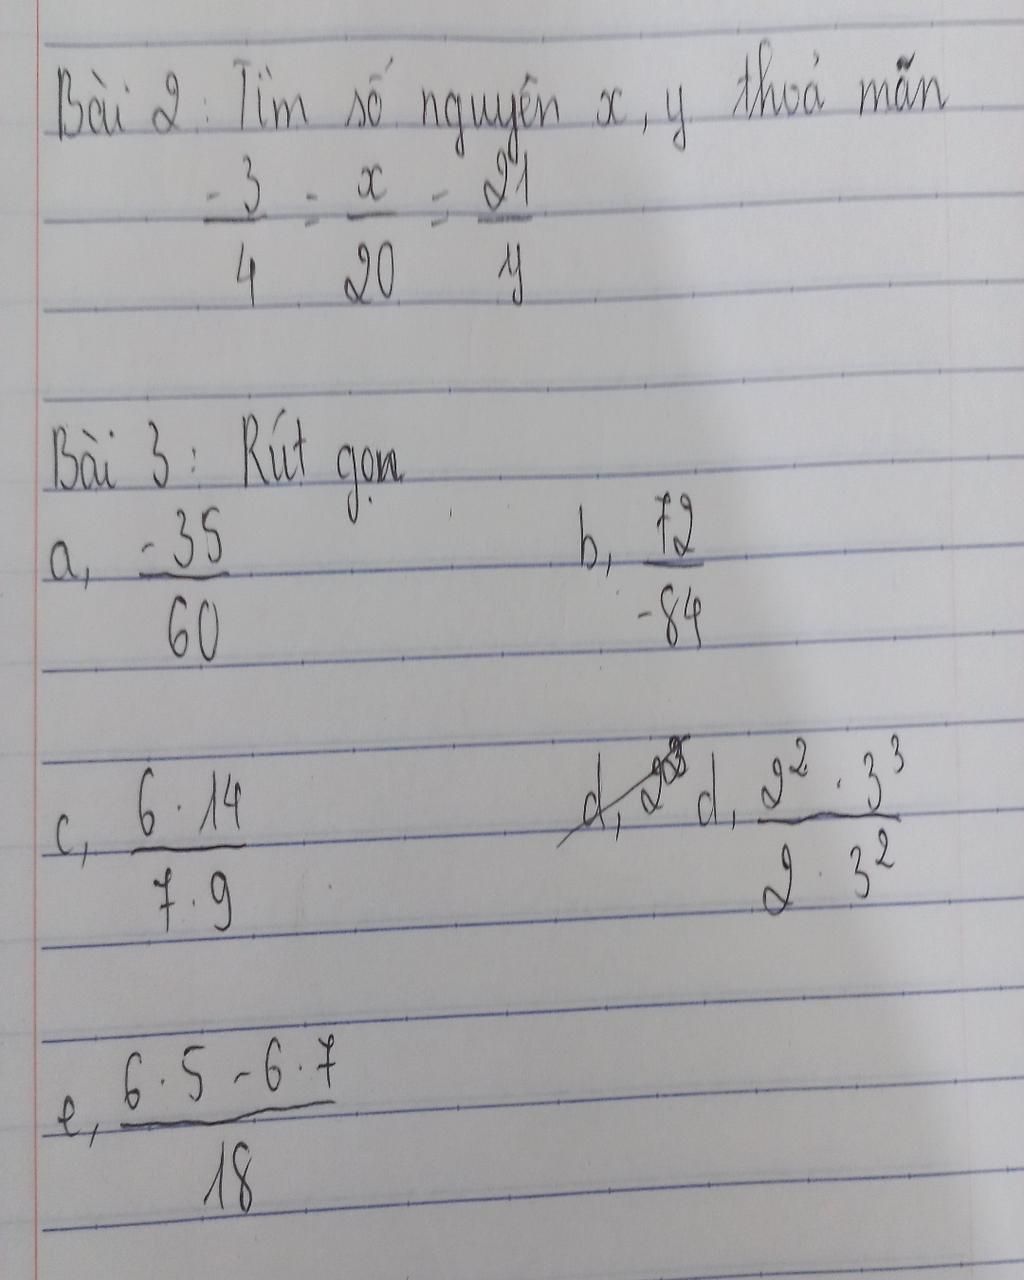 Bài 2: Tìm số nguyên x, y thoả mãn
-3/4 = x/20 = 21/y
Bài 3: Rút gọn
a, -35/60 b, 72/-84
c, 6·14/7·9 d, 2² · 3³/2 · 3²
e, 6·5 - 6·7/18